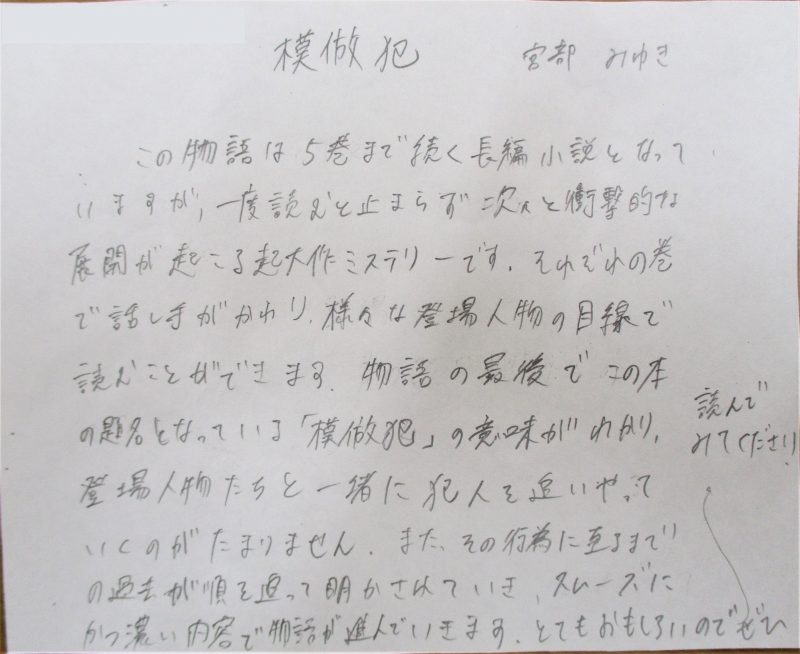 模倣犯　宮部 みゆき
この物語は5巻まで続く長編小説となって
いますが、一度読むと止まらず次々と衝撃的な
展開が起こる起大作ミステリーです。それぞれの巻
で話し手がかわり、様々な登場人物の目線で
読むことができます。物語の最後でこの本
の題名となっている「模倣犯」の意味がわかり、
登場人物たちと一緒に犯人を追いやって
いくのがたまりません。また、その行為に至るまで
の過去が順を追って明かされていき、スムーズに
かつ濃い内容で物語が進んでいきます。とてもおもしろいのでぜひ
読んで
みてください